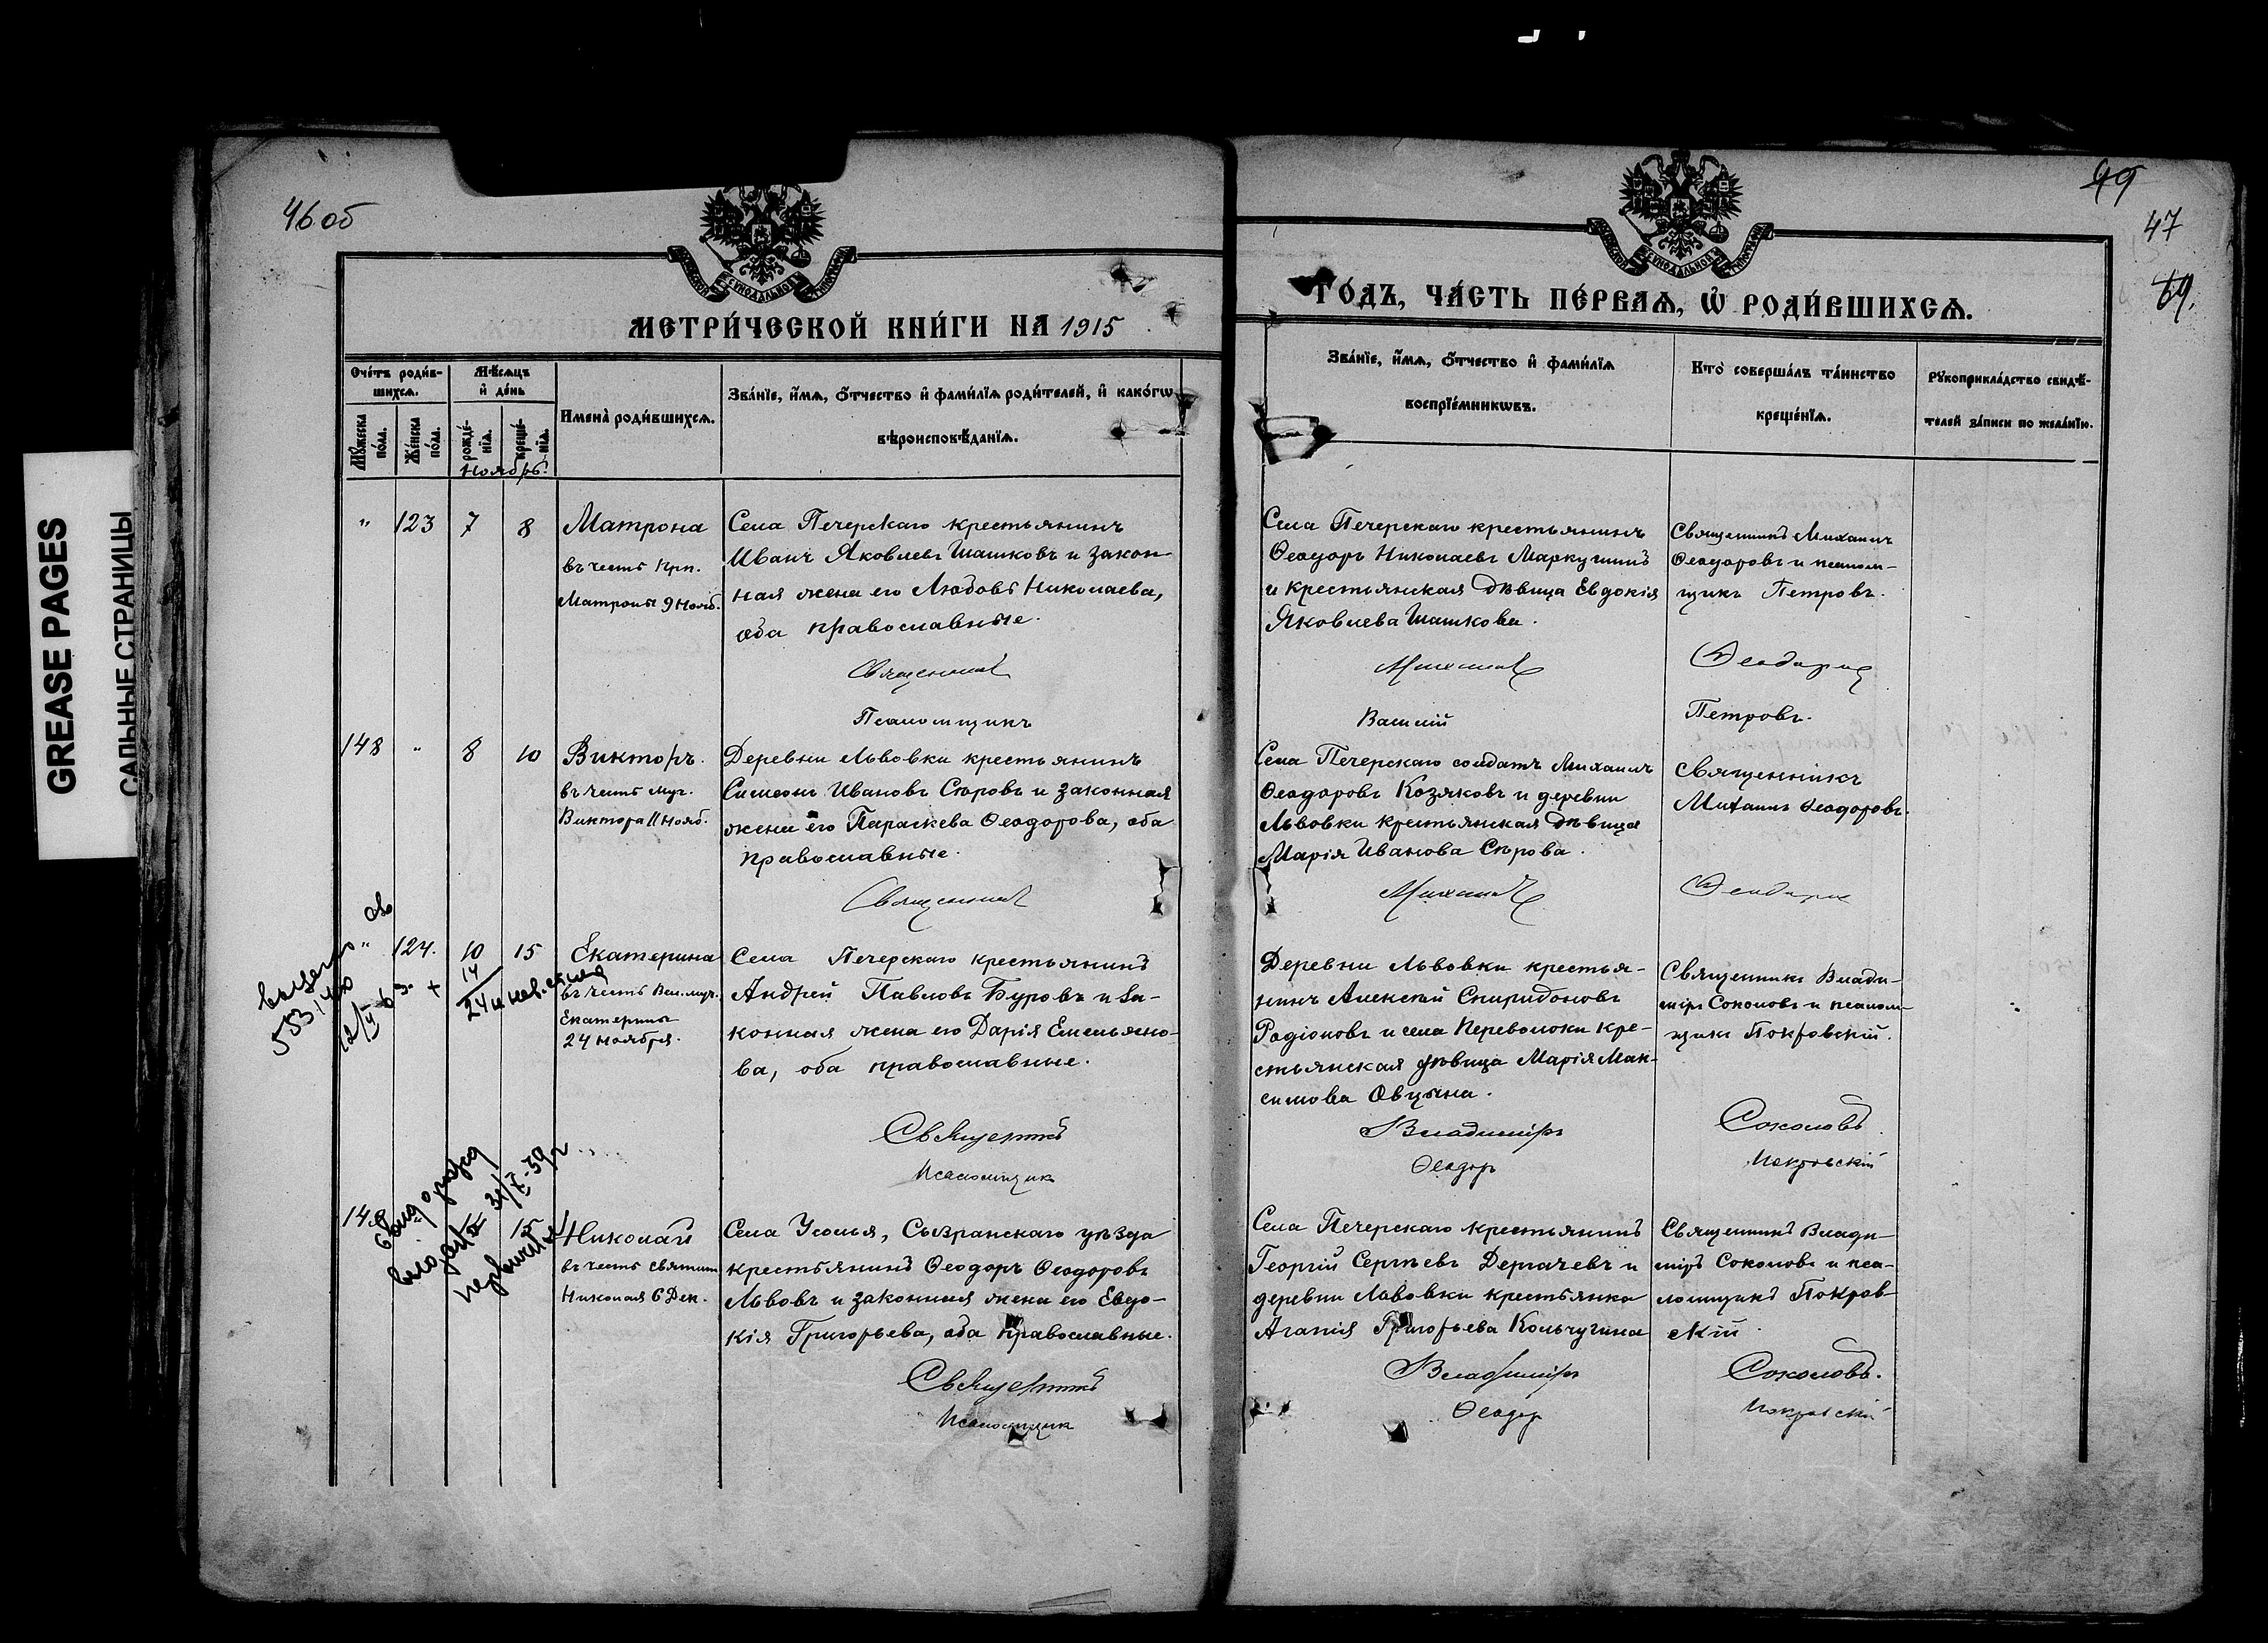 GREASE PAGES
САЛЬНЫЕ СТРАНИЦЫ
46 об
МЕТРИ́ЧЕСКОЙ КНИ́ГИ НА 1915
Сче́тъ роди́в-
шихсѧ.
Мѣ́сѧцъ
и҆ де́нь
Мꙋ́жеска по́ла.
Же́нска по́ла.
рожде́-
нїѧ.
креще́-
нїѧ.
Имена̀ роди́вшихсѧ.
Зва́нїе, и҆́мѧ, о҆́тчество и҆ фами́лїѧ роди́телей, и҆ како́гѡ
вѣроисповѣ́данїѧ.
Ноябрь
" 123 7 8 Матрона
въ честь Прп.
Матроны 9 Нояб.
Села Печерскаго крестьянинъ
Иванъ Яковлевъ Шашковъ и закон-
ная жена его Любовь Николаева,
оба православные.
Священникъ
Псаломщикъ
148 " 8 10 Викторъ.
въ честь муч.
Виктора 11 Нояб.
Деревни Львовки крестьянинъ
Симеонъ Ивановъ Сѣровъ и законная
жена его Параскева Ѳеодорова, оба
православные.
Священникъ
" 124. 10 15 Екатерина
въ честь Вел. муч.
Екатерины
24 Ноября.
Села Печерскаго крестьянинъ
Андрей Павловъ Буровъ и за-
конная жена его Дарія Емельяно-
ва, оба православные.
Священникъ
Псаломщик
15 Николай
въ честь святит
Николая 6 Дек.
Села Усолья, Сызранскаго уѣзда
крестьянинъ Ѳеодоръ Ѳеодоровъ
Львовъ и законная жена его Евдо-
кія Григорьева, оба православные.
Священникъ
Псаломщик
47
69.
ГО́ДЪ, ЧА́СТЬ ПЕ́РВАѦ, Ѡ҆ РОДИ́ВШИХСѦ.
Зва́нїе, и҆́мѧ, о҆́тчество и҆ фами́лїѧ
воспрїе́мникѡвъ.
Кто̀ соверша́лъ та́инство
креще́нїѧ.
Рꙋкоприкла́дство свидѣ́-
телей за́писи по жела́нїю.
Села Печерскаго крестьянинъ
Ѳеодоръ Николаевъ Маркушинъ
и крестьянская дѣвица Евдокія
Яковлева Шашкова.
Михаилъ
Василій
Священникъ Михаилъ
Ѳеодоровъ и псалом-
щикъ Петровъ.
Ѳеодоровъ
Петровъ.
Села Печерскаго солдатъ Михаилъ
Ѳеодоровъ Козяковъ и деревни
Львовки крестьянская дѣвица
Марія Иванова Сѣрова.
Михаилъ
Священникъ
Михаилъ Ѳеодоровъ.
Ѳеодоровъ
Деревни Львовки крестья-
нинъ Алексѣй Спиридоновъ
Родіоновъ и села Переволоки кре-
стьянская дѣвица Марія Мак-
симова Овцына.
Владиміръ
Ѳеодоръ
Священникъ Влади-
міръ Соколовъ и псалом-
щикъ Покровскій.
Соколовъ
Покровскій
Села Печерскаго крестьянинъ
Георгій Сергѣевъ Дергачевъ и
деревни Львовки крестьянка
Агапія Григорьева Кольчугина
Владиміръ
Ѳеодоръ
Священникъ Влади-
міръ Соколовъ и пса-
ломщикъ Покров-
скій
Соколовъ.
Покровскій